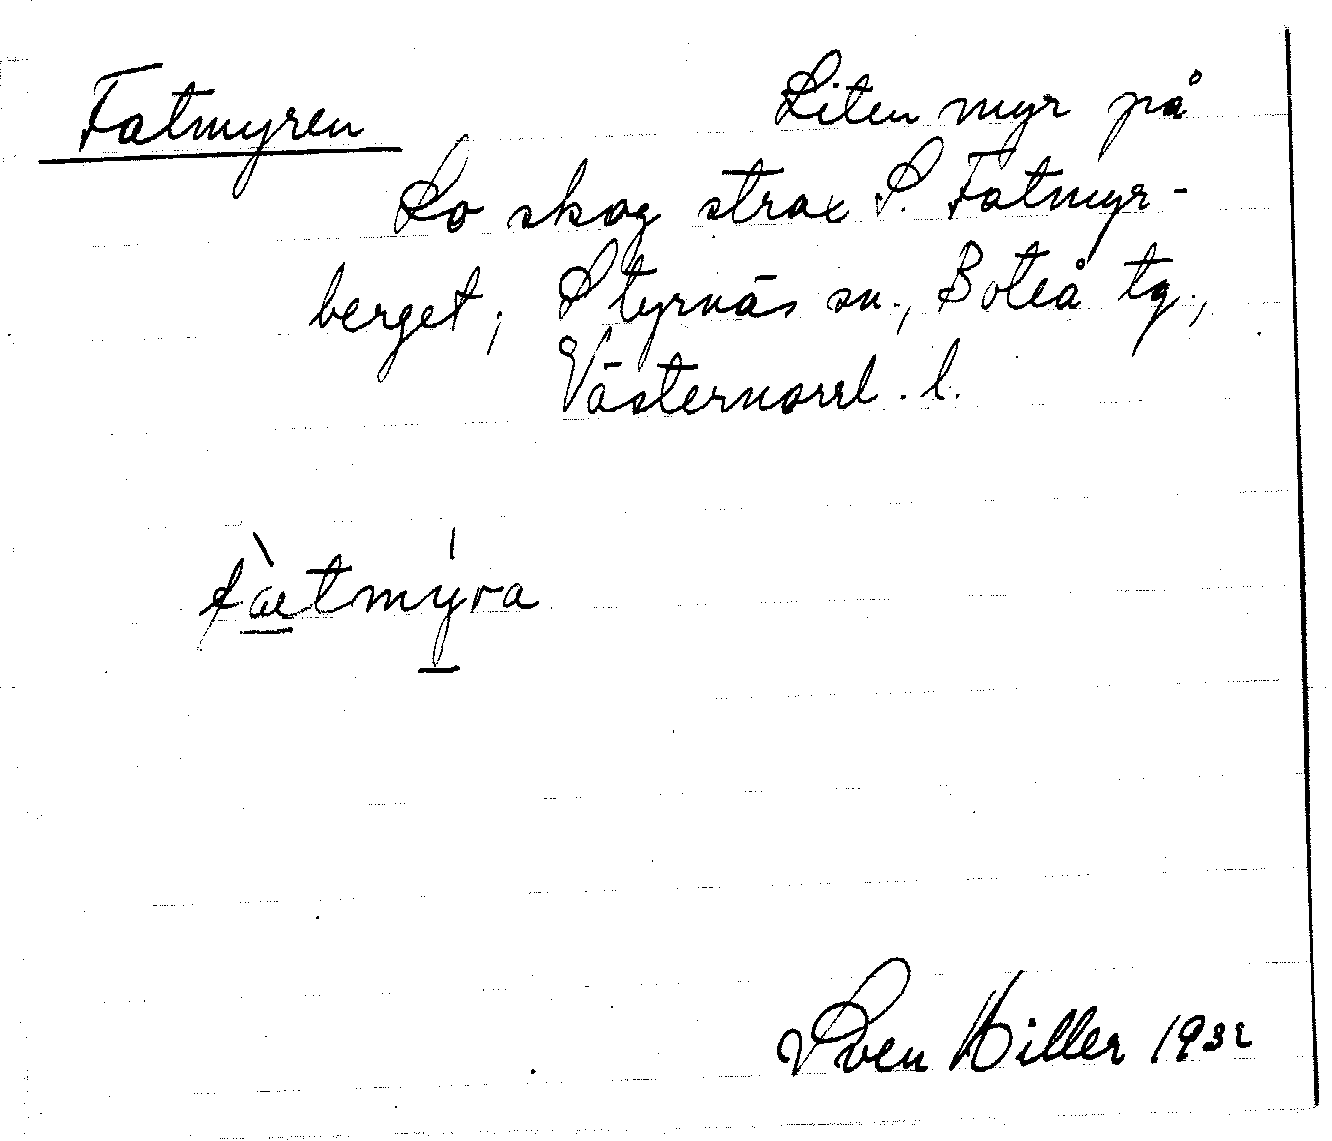 Fatmyren Liten myr på
Lo skog strax S. Fatmyr-
berget; Styrnäs sn., Boteå tg.,
Västernorrl. l.
fàetmýra
Sven Hiller 1932